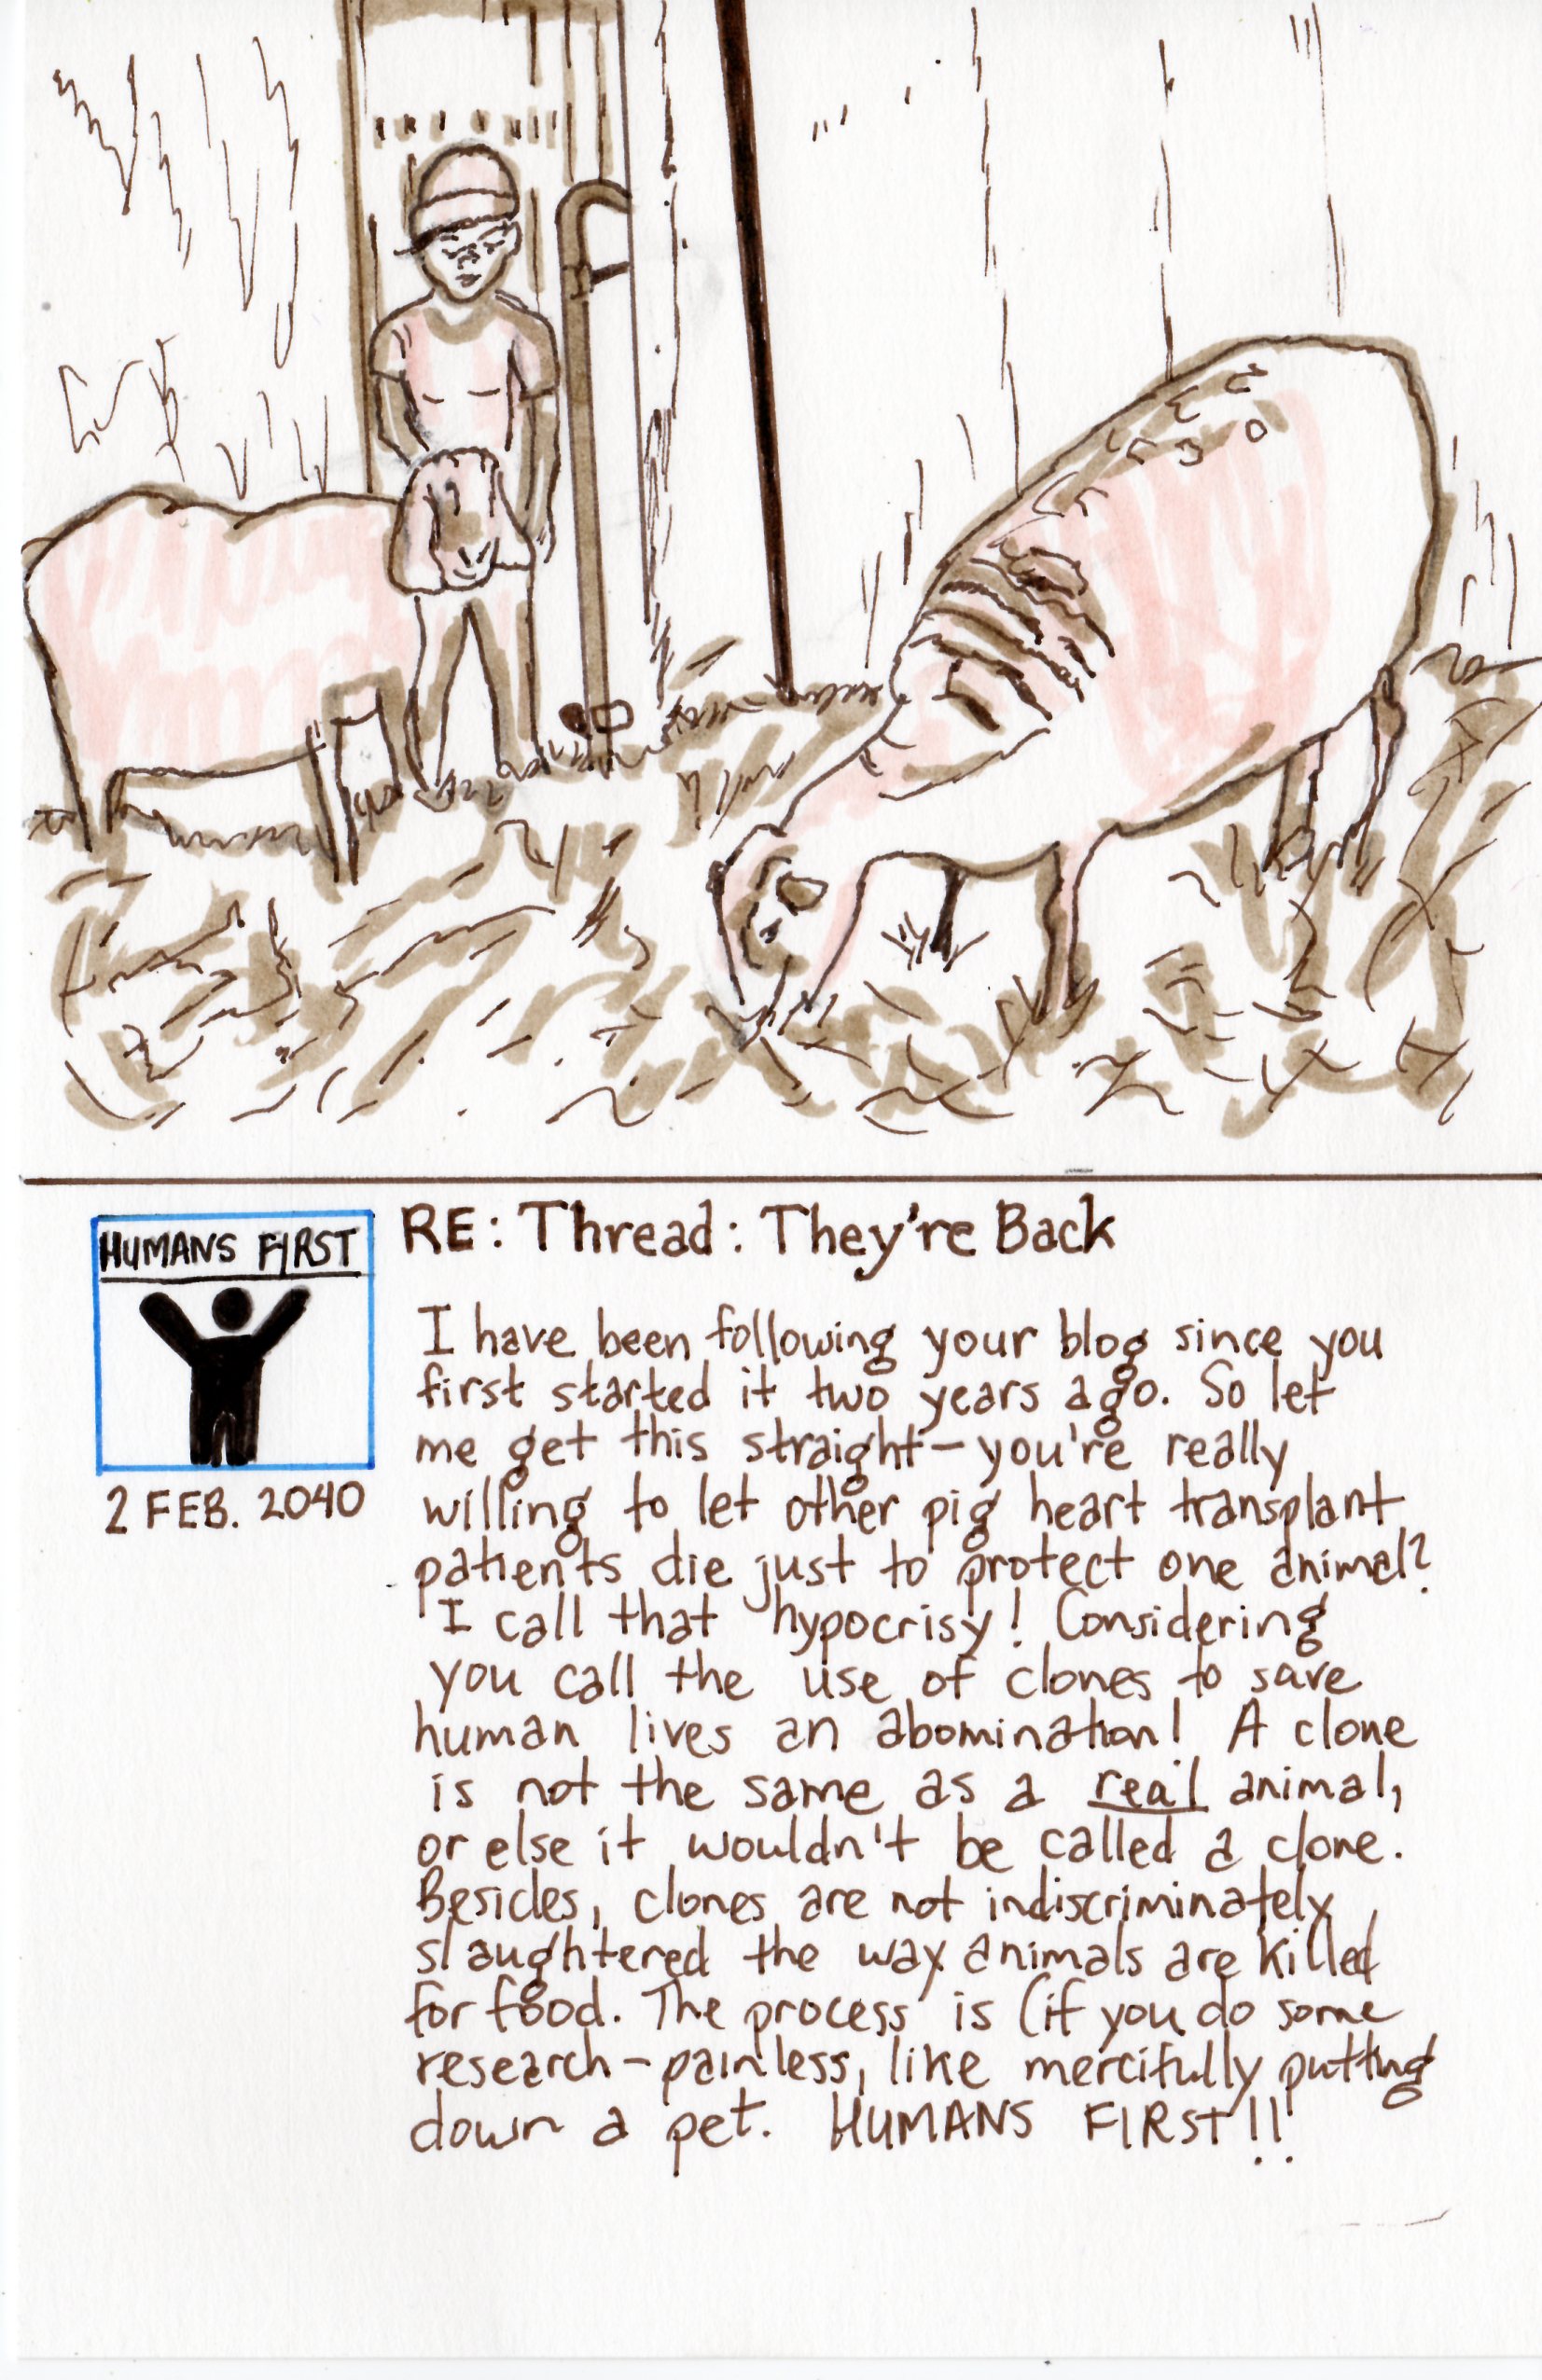 HUMANS FIRST
2 FEB. 2040
RE: Thread: They're Back
I have been following your blog since you
first started it two years ago. So let
me get this straight - you're really
willing to let other pig heart transplant
patients die just to protect one animal?
I call that hypocrisy! Considering
you call the use of clones to save
human lives an abomination! A clone
is not the same as a real animal,
or else it wouldn't be called a clone.
Besides, clones are not indiscriminately
slaughtered the way animals are killed
for food. The process is (if you do some
research - painless, like mercifully putting
down a pet. HUMANS FIRST!!